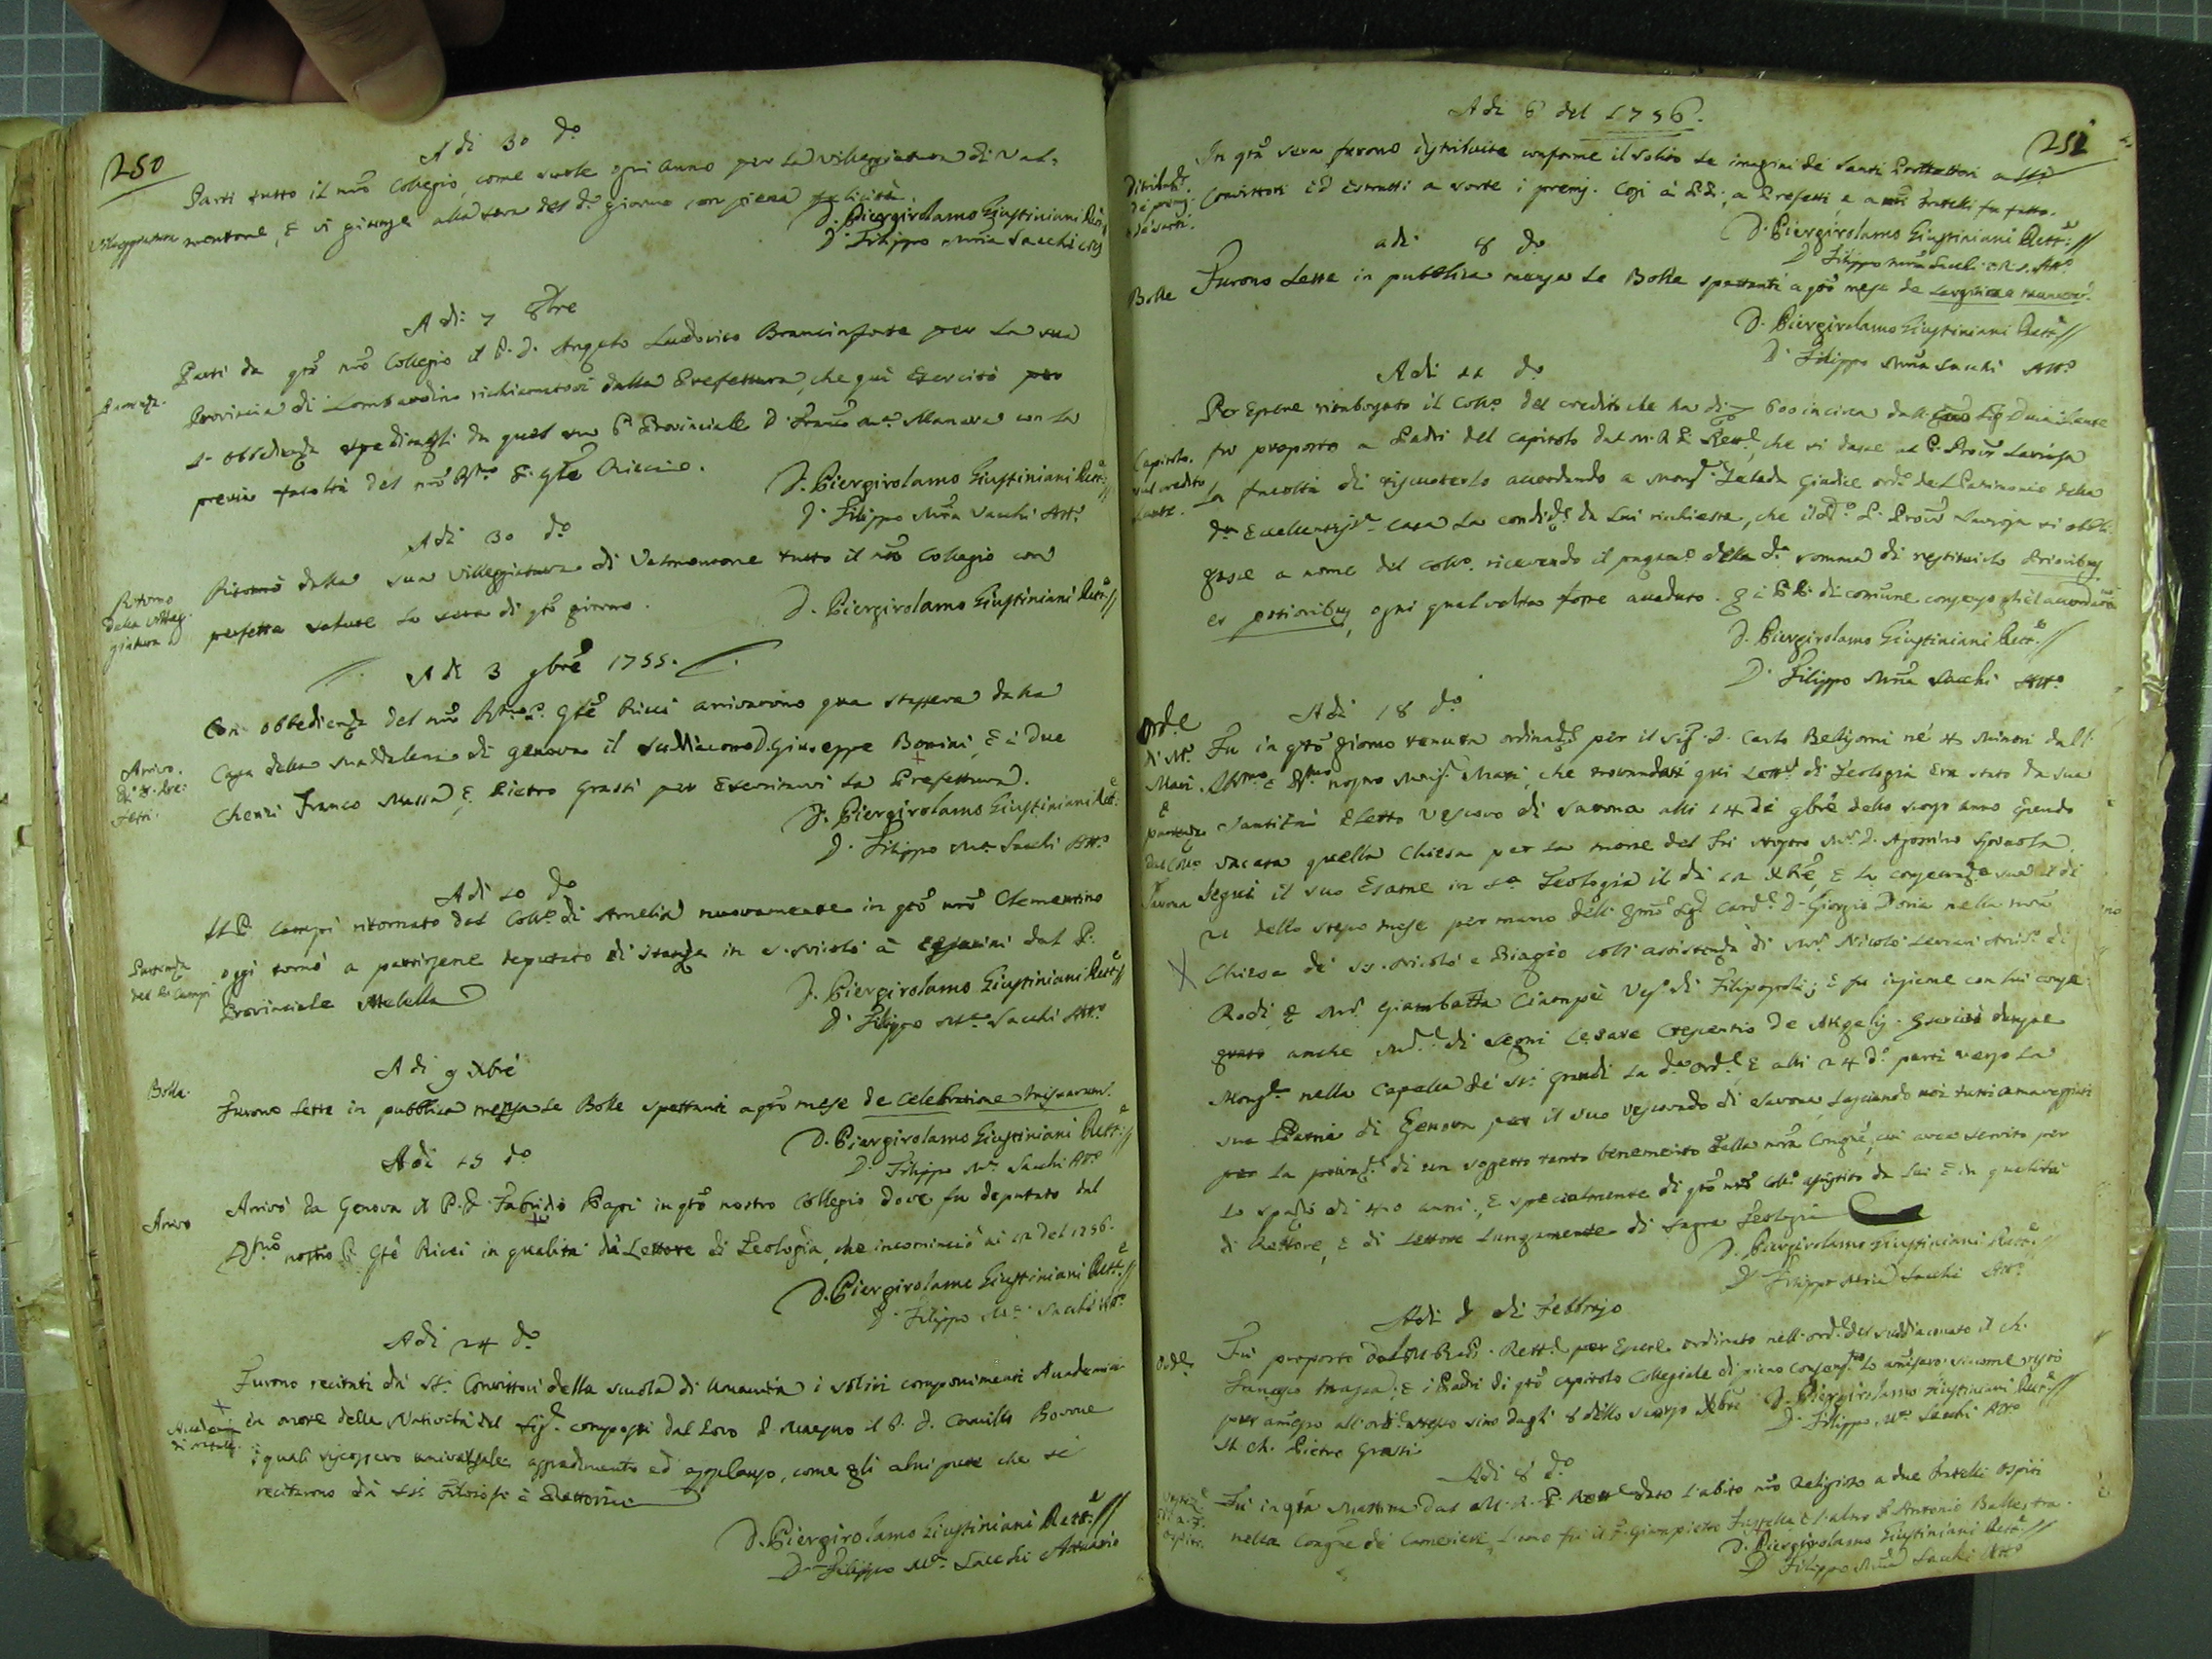 250
A di 30 do
Villeggiatura
Parti tutto il nro Collegio, come suole ogni anno per la villeggiatura di Val-
montone, e vi giunse alla sera del do giorno con piena felicità.
D. Piergirolamo Giustiniani Rett.e
D. Filippo Maria Sacchi
A di 7 8bre
Partenza.
Parti da qto nro Collegio il P. D. Angelo Ludovico Branciforte per la sua
Provincia di Lombardia richiamatovi dalla Prefettura, che qui esercitò per
l'obbedienza speditagli da quel suo P. Provinciale D. Franco Ma. Manara con la
previa facoltà del nro Rmo P. Gle Riccio.
D. Piergirolamo Giustiniani Rett.e
D. Filippo Mria Sacchi Att.o
A di 30 do
Ritorno
dalla Villeg-
giatura
Ritornò dalla sua villeggiatura di Valmontone tutto il nro Collegio con
perfetta salute la sera di qto giorno.
D. Piergirolamo Giustiniani Rett.e
A di 3 9bre 1755.
Arrivo
di Pre-
fetti.
Con obbedienza del nro Rmo P. Gle Ricci arrivarono qua stassera dalla
Casa della Maddalena di Genova il Suddiacono D. Giuseppe Bonini, e i due
Cherici Franco Massa e Pietro Grassi per esercitarvi la Prefettura.
D. Piergirolamo Giustiniani Rett.e
D. Filippo Ma. Sacchi Att.o
A di 10 do
Partenza
del P. Campi
Il P. Campi ritornato dal Coll.o di Amelia nuovamente in qto nro Clementino
oggi tornò a partirsene deputato di stanza in S. Nicolò a Cesarini dal P.
Provinciale Melella
D. Piergirolamo Giustiniani Rett.e
D. Filippo Ma. Sacchi Att.o
A di 9 Xbre
Bolla.
Furono lette in pubblica mensa le Bolle spettanti a qto mese de celebratione Missarum.
D. Piergirolamo Giustiniani Rett.e
D. Filippo Ma. Sacchi Att.o
A di 15 do
Arrivo
Arrivò da Genova il P. D. Fabrizio Papi in qto nostro Collegio dove fu deputato dal
Rmo nostro P. Gle Ricci in qualità di Lettore di Teologia, che incominciò ai 12 del 1756.
D. Piergirolamo Giustiniani Rett.e
D. Filippo Ma. Sacchi Att.o
A di 24 do
Accademia
di Natale.
Furono recitati da Sri Convittori della scuola di Umanità i soliti componimenti Academici
in onore della Natività del Sigre composti dal loro P. Maestro il P. D. Camillo Bovone
i quali riscossero universale aggradimento ed applauso, come gli altri pure che si
recitarono da Sri Filosofi e Rettorici
D. Piergirolamo Giustiniani Rett.e
D. Filippo Ma. Sacchi Attuario
251
A di 6 del 1756.
Distribuz.e
de premj
e de Santi.
In qta sera furono distribuite conforme il solito le imagini de Santi Protettori a Sri
Convittori ed estratti a sorte i premj. Così a PP., a Prefetti, e a nri fratelli fu fatto.
D. Piergirolamo Giustiniani Rett.e
D. Filippo Mria Sacchi C.R.S. Att.o
adi 8 do
Bolle
Furono lette in pubblica mensa le Bolle spettanti a qto mese de largitione munerum.
D. Piergirolamo Giustiniani Rett.e
D. Filippo Mria Sacchi Att.o
A di 11 do
Capitolo.
sul credito
Per essere rimborsato il Coll.o del credito che ha di 600 incirca dall'
fu proposto a Padri del Capitolo dal M. R. P. Rett.e, che si dasse al P. Procur
la facoltà di riscuoterlo accordando a Monsr Zelada Giudice ord.o del Patrimonio della
da Eccellentissma casa la condize da lui richiesta, che il do P. Procur si obbli-
gasse a nome del Coll.o ricevendo il pagamto della da somma di restituirlo Prioribus
et potioribus, ogni qualvolta fosse accaduto. E i PP. di comune consenso
D. Piergirolamo Giustiniani Rett.e
D. Filippo Mria Sacchi Att.o
A di 18 do
Ord.e
di Mr
Mari
e
partenza
dal Coll.o
Savona
Fu in qto giorno tenuta ordinaze per il Sigr D. Carlo Belisomi ne 4 Minori dall'
Illmo e Rmo nostro Monsr Mari, che trovandosi qui Lettre di Teologia era stato da sua
Santità eletto Vescovo di Savona alli 14 di 9bre dello scorso anno essendo
vacata quella Chiesa per la morte del fu nostro Mr D. Agostino Spinola.
Segui il suo esame in Sa Teologia il di 12 Xbre, e la consecraze sua il di
21 dello stesso mese per mano dell' Emo Sigr Cardle D. Giorgio Doria nella nra
Chiesa de SS. Nicolò e Biagio coll' assistenza di Mr Nicolò Lercari Arcivo di
Rodi, e Mr Giambatta Ciampè Vesvo di Filipopoli; e fu insieme con lui conse-
grato anche Mr di Segni Cesare Crescenzio De Angelis. Esercitò dunque
Monsre nella Capella de Sri grandi la da ord.e e alli 24 do partì verso la
sua Patria di Genova per il suo Vescovado di Savona, lasciando noi tutti amareggiati
per la privaze di un soggetto tanto benemerito della nra Congne, cui avea servito per
lo spazio di 40 anni, e specialmente di qto nro Coll.o assistito da lui e in qualità
di Rettore, e di Lettore lungamente di sagra Teologia
D. Piergirolamo Giustiniani Rett.e
D. Filippo Mria Sacchi Att.o
Adi di Febbrajo
Ord.e
Fu proposto dal M. R. P. Rett.e per essere ordinato nell' ord.e del Suddiaconato il Ch.
Francesco Massa; e i Padri di qto Capitolo Collegiale di pieno consenso lo ammisero siccome restò
pur ammesso all' ord.e stesso sino dagli 8 dello scorso Xbre
il Ch. Pietro Grassi
D. Piergirolamo Giustiniani Rett.e
D. Filippo Ma. Sacchi Att.o
Adi 8 do
Fu in qta mattina dal M. R. P. Rett.e dato l'abito nro Religioso a due fratelli Ospiti
nella Congne de Camerieri, l'uno fu il F. Giampietro e l'altro F. Antonio Ballestra.
D. Piergirolamo Giustiniani Rett.e
D. Filippo Mria Sacchi Att.o